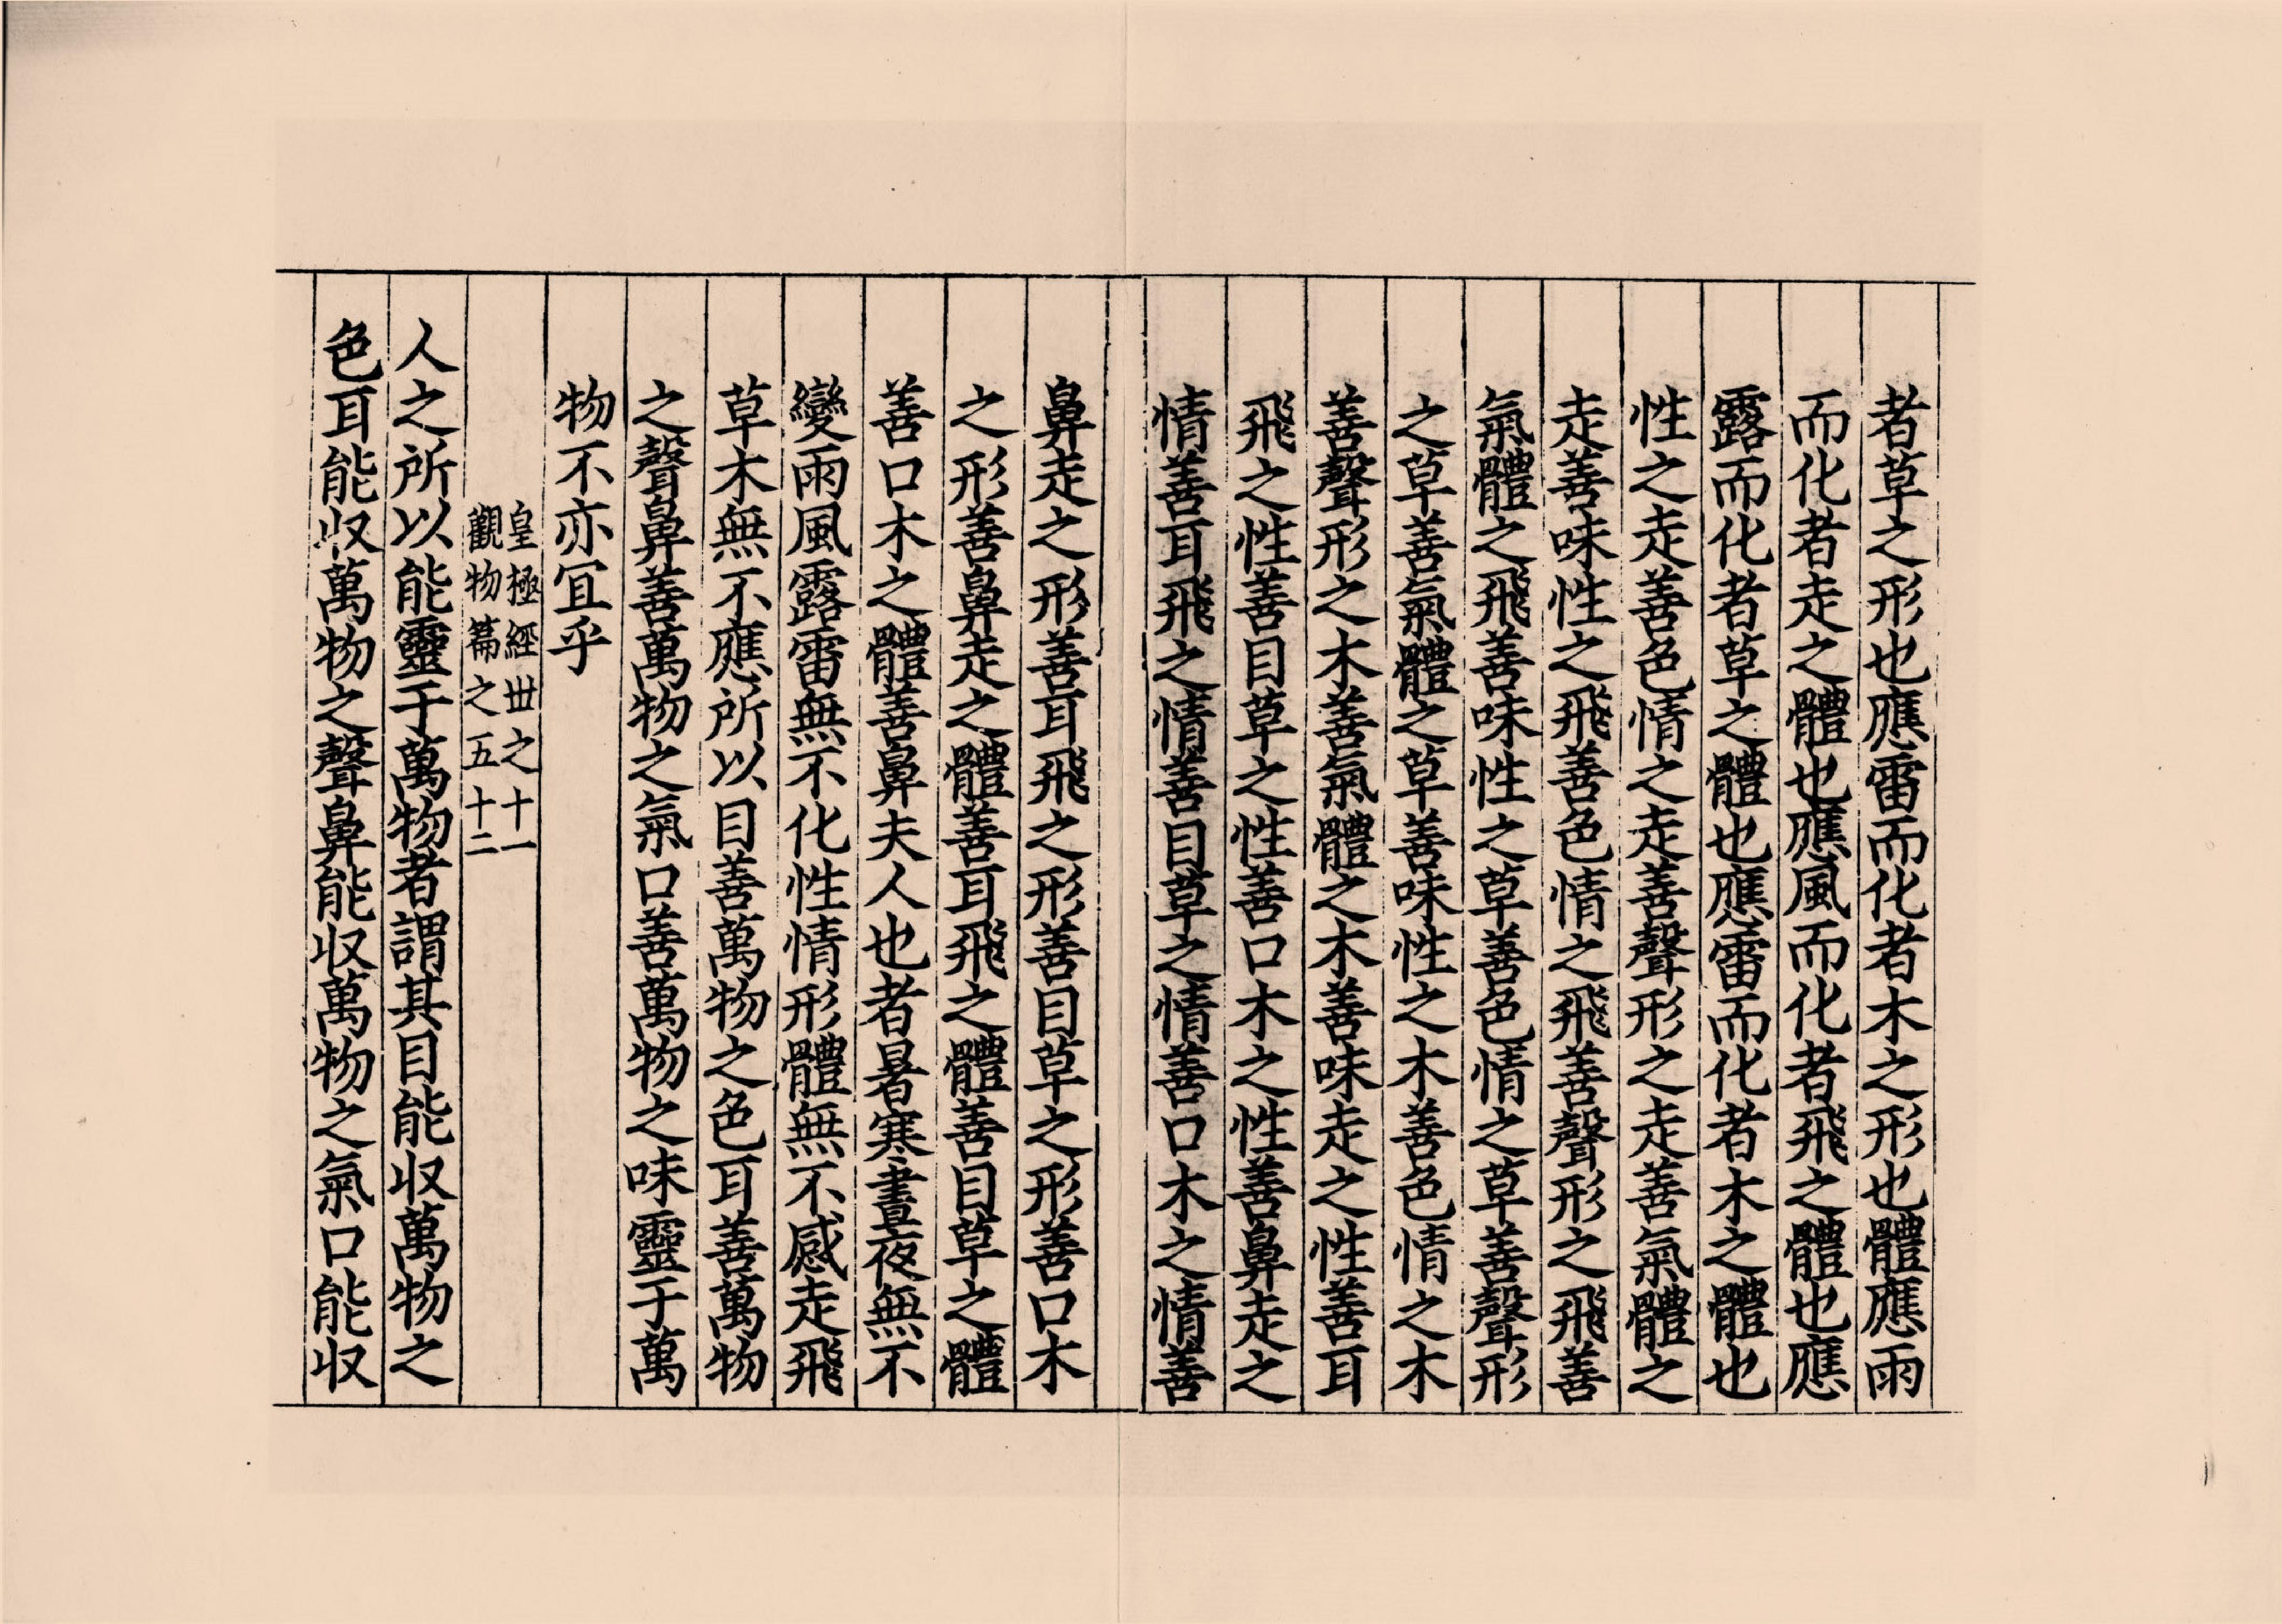 者草之形也應雷而化者木之形也體應雨
而化者走之體也應風而化者飛之體也應
露而化者草之體也應雷而化者木之體也
性之走善色情之走善聲形之走善氣體之
走善味性之飛善色情之飛善聲形之飛善
氣體之飛善味性之草善色情之草善聲形
之草善氣體之草善味性之木善色情之木
善聲形之木善氣體之木善味走之性善耳
飛之性善目草之性善口木之性善鼻走之
情善耳飛之情善目草之情善口木之情善
鼻走之形善耳飛之形善目草之形善口木
之形善鼻走之體善耳飛之體善目草之體
善口木之體善鼻夫人也者暑寒晝夜無不
變雨風露雷無不化性情形體無不感走飛
草木無不應所以目善萬物之色耳善萬物
之聲鼻善萬物之氣口善萬物之味靈于萬
物不亦宜乎
皇極經丗之十一
觀物篇之五十二
人之所以能靈于萬物者謂其目能収萬物之
色耳能収萬物之聲鼻能収萬物之氣口能収